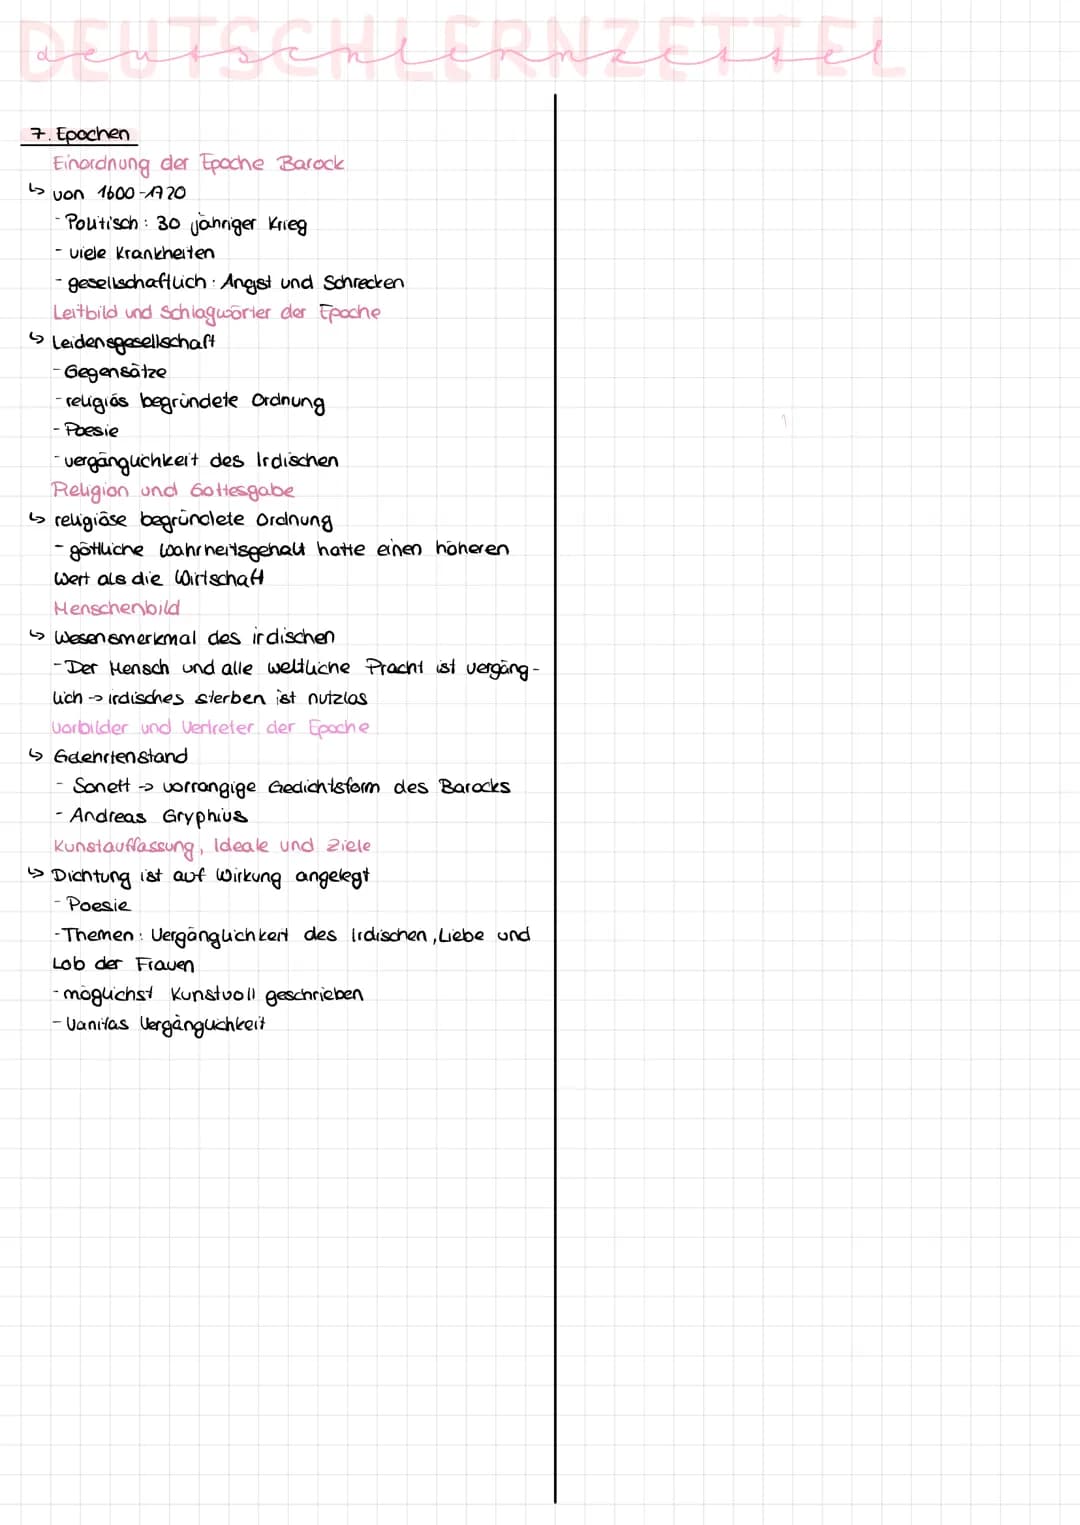 DEUTSCHLERNZETTEL
deutschlernzettel
7. Epochen
Einordnung der Epoche Barock
↳ von 1600-1720
- Politisch: 30 jähriger Krieg
- viele Krankheiten
- gesellschaftlich: Angst und Schrecken
Leitbild und Schlagwörter der Epoche
↳ Leidensgesellschaft
- Gegensätze
- religiös begründete Ordnung
- Poesie
- vergänglichkeit des Irdischen
Religion und Gottesgabe
↳ religiöse begründete Ordnung
- göttliche Wahrheitsgehalt hatte einen höheren
Wert als die Wirtschaft
Menschenbild
↳ Wesensmerkmal des irdischen
- Der Mensch und alle weltliche Pracht ist vergäng-
lich -> irdisches sterben ist nutzlos
Vorbilder und Vertreter der Epoche
↳ Gelehrtenstand
- Sonett -> vorrangige Gedichtsform des Barocks
- Andreas Gryphius
Kunstauffassung, Ideale und Ziele
↳ Dichtung ist auf Wirkung angelegt
- Poesie
- Themen: Vergänglichkeit des Irdischen, Liebe und
Lob der Frauen
- möglichst Kunstvoll geschrieben
- Vanitas Vergänglichkeit